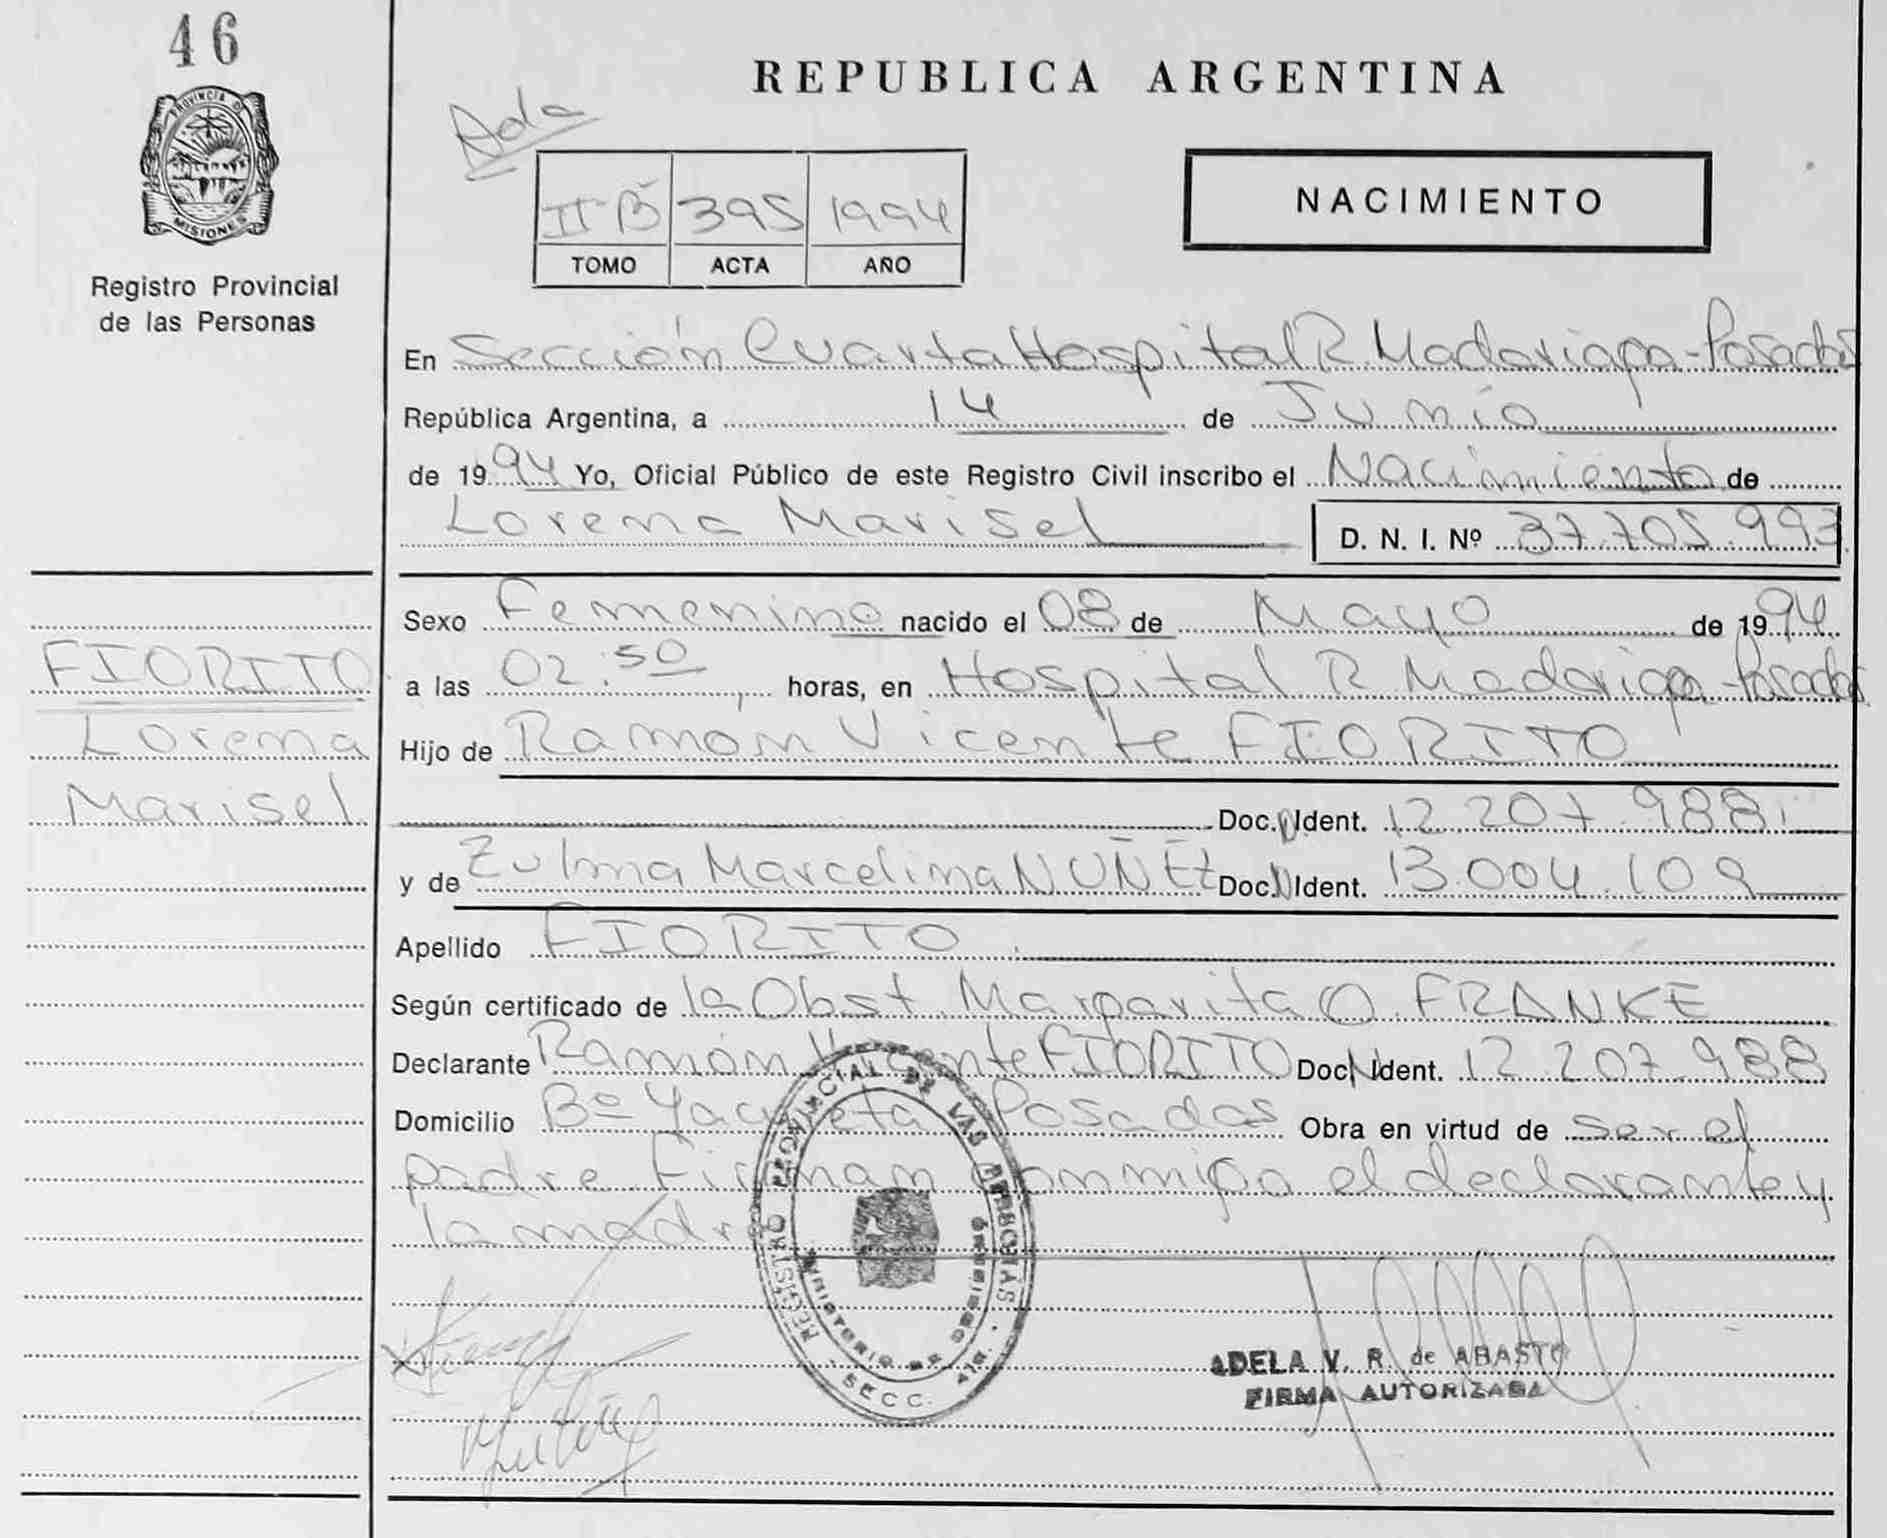 46
PROVINCIA DE
MISIONES
Registro Provincial
de las Personas
FIORITO
Lorena
Marisel
REPUBLICA ARGENTINA
Ada
II B 395 1994
TOMO ACTA AÑO
NACIMIENTO
En Sección Cuarta Hospital R. Madariaga - Posadas
República Argentina, a 14 de Junio
de 1994 Yo, Oficial Público de este Registro Civil inscribo el Nacimiento de
Lorena Marisel D. N. I. Nº 37.705.993
Sexo Femenino nacido el 08 de Mayo de 1994
a las 02:50 horas, en Hospital R. Madariaga - Posadas
Hijo de Ramón Vicente FIORITO
Doc. N Ident. 12.207.988
y de Zulma Marcelina NUÑEZ Doc. N Ident. 13.004.109
Apellido FIORITO
Según certificado de la Obst. Margarita O. FRANKE
Declarante Ramón Vicente FIORITO Doc. N Ident. 12.207.988
Domicilio Bº Yacyreta Posadas Obra en virtud de ser el
padre Firman conmigo el declarante y
la madre
REGISTRO PROVINCIAL DE LAS PERSONAS
MINISTERIO DE GOBIERNO
SECC. 4ta.
ADELA V. R. de ABASTO
FIRMA AUTORIZADA